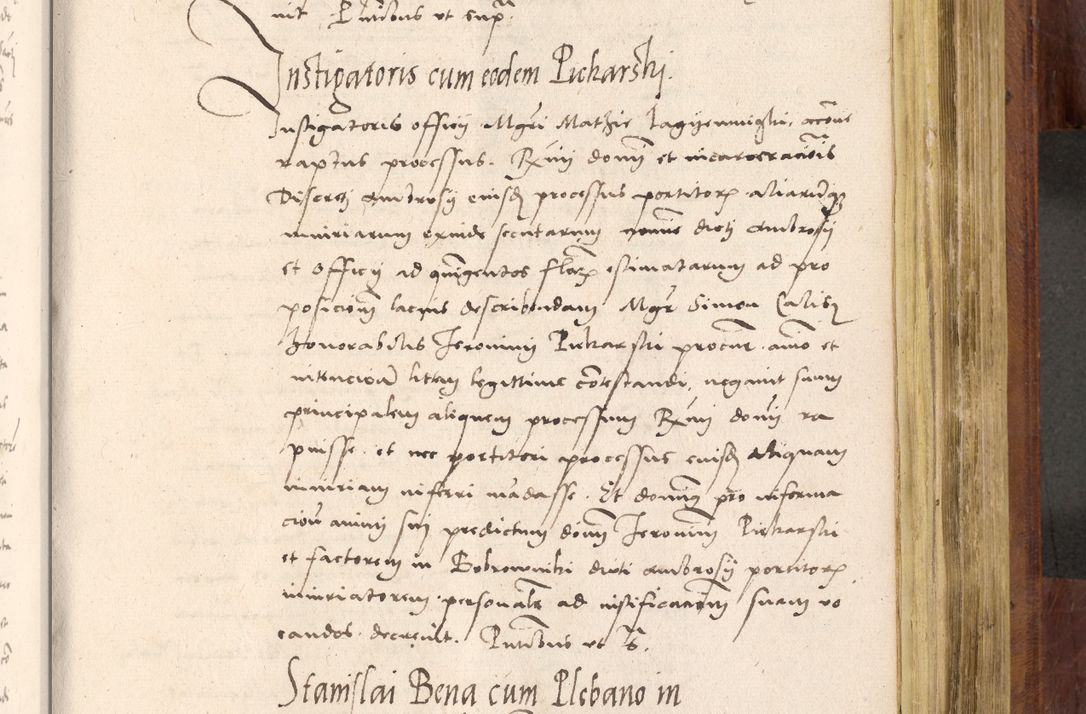 Pntibus ut supra
Instigatoris cum eodem Piekarskj.
Instigatoris officij Mgri Mathie Iagijenniczki, accone
raptus processus Rmi domi et incarceracionis
Discreti Ambrosij eiusdem processus portitoris aliarumque
iniuriarum exinde secutarum nomine dicti Ambrosij
et officij ad quingentos flor estimatarum ad pro
posicionem lacius describendam Mgr Simon Calisz
honorabilis Ieronimi Piekarski procur animo et
intencione litem legittime contestandi, negauit suum
principalem aliquem processum Rmi domi ra
puisse et nec portitori processus eiusdem aliquam
iniuriam inferri mandasse. Et dominus pro informa
cione animi sui predictum domi Ieronimum Piekarski
et factorem in Bobrowniki dicti Ambrosij portitoris
iniuriatorem personaliter ad iustificacionem suam vo
candos decreuit. Pntibus ut s.
Stanislai Bena cum Plebano in